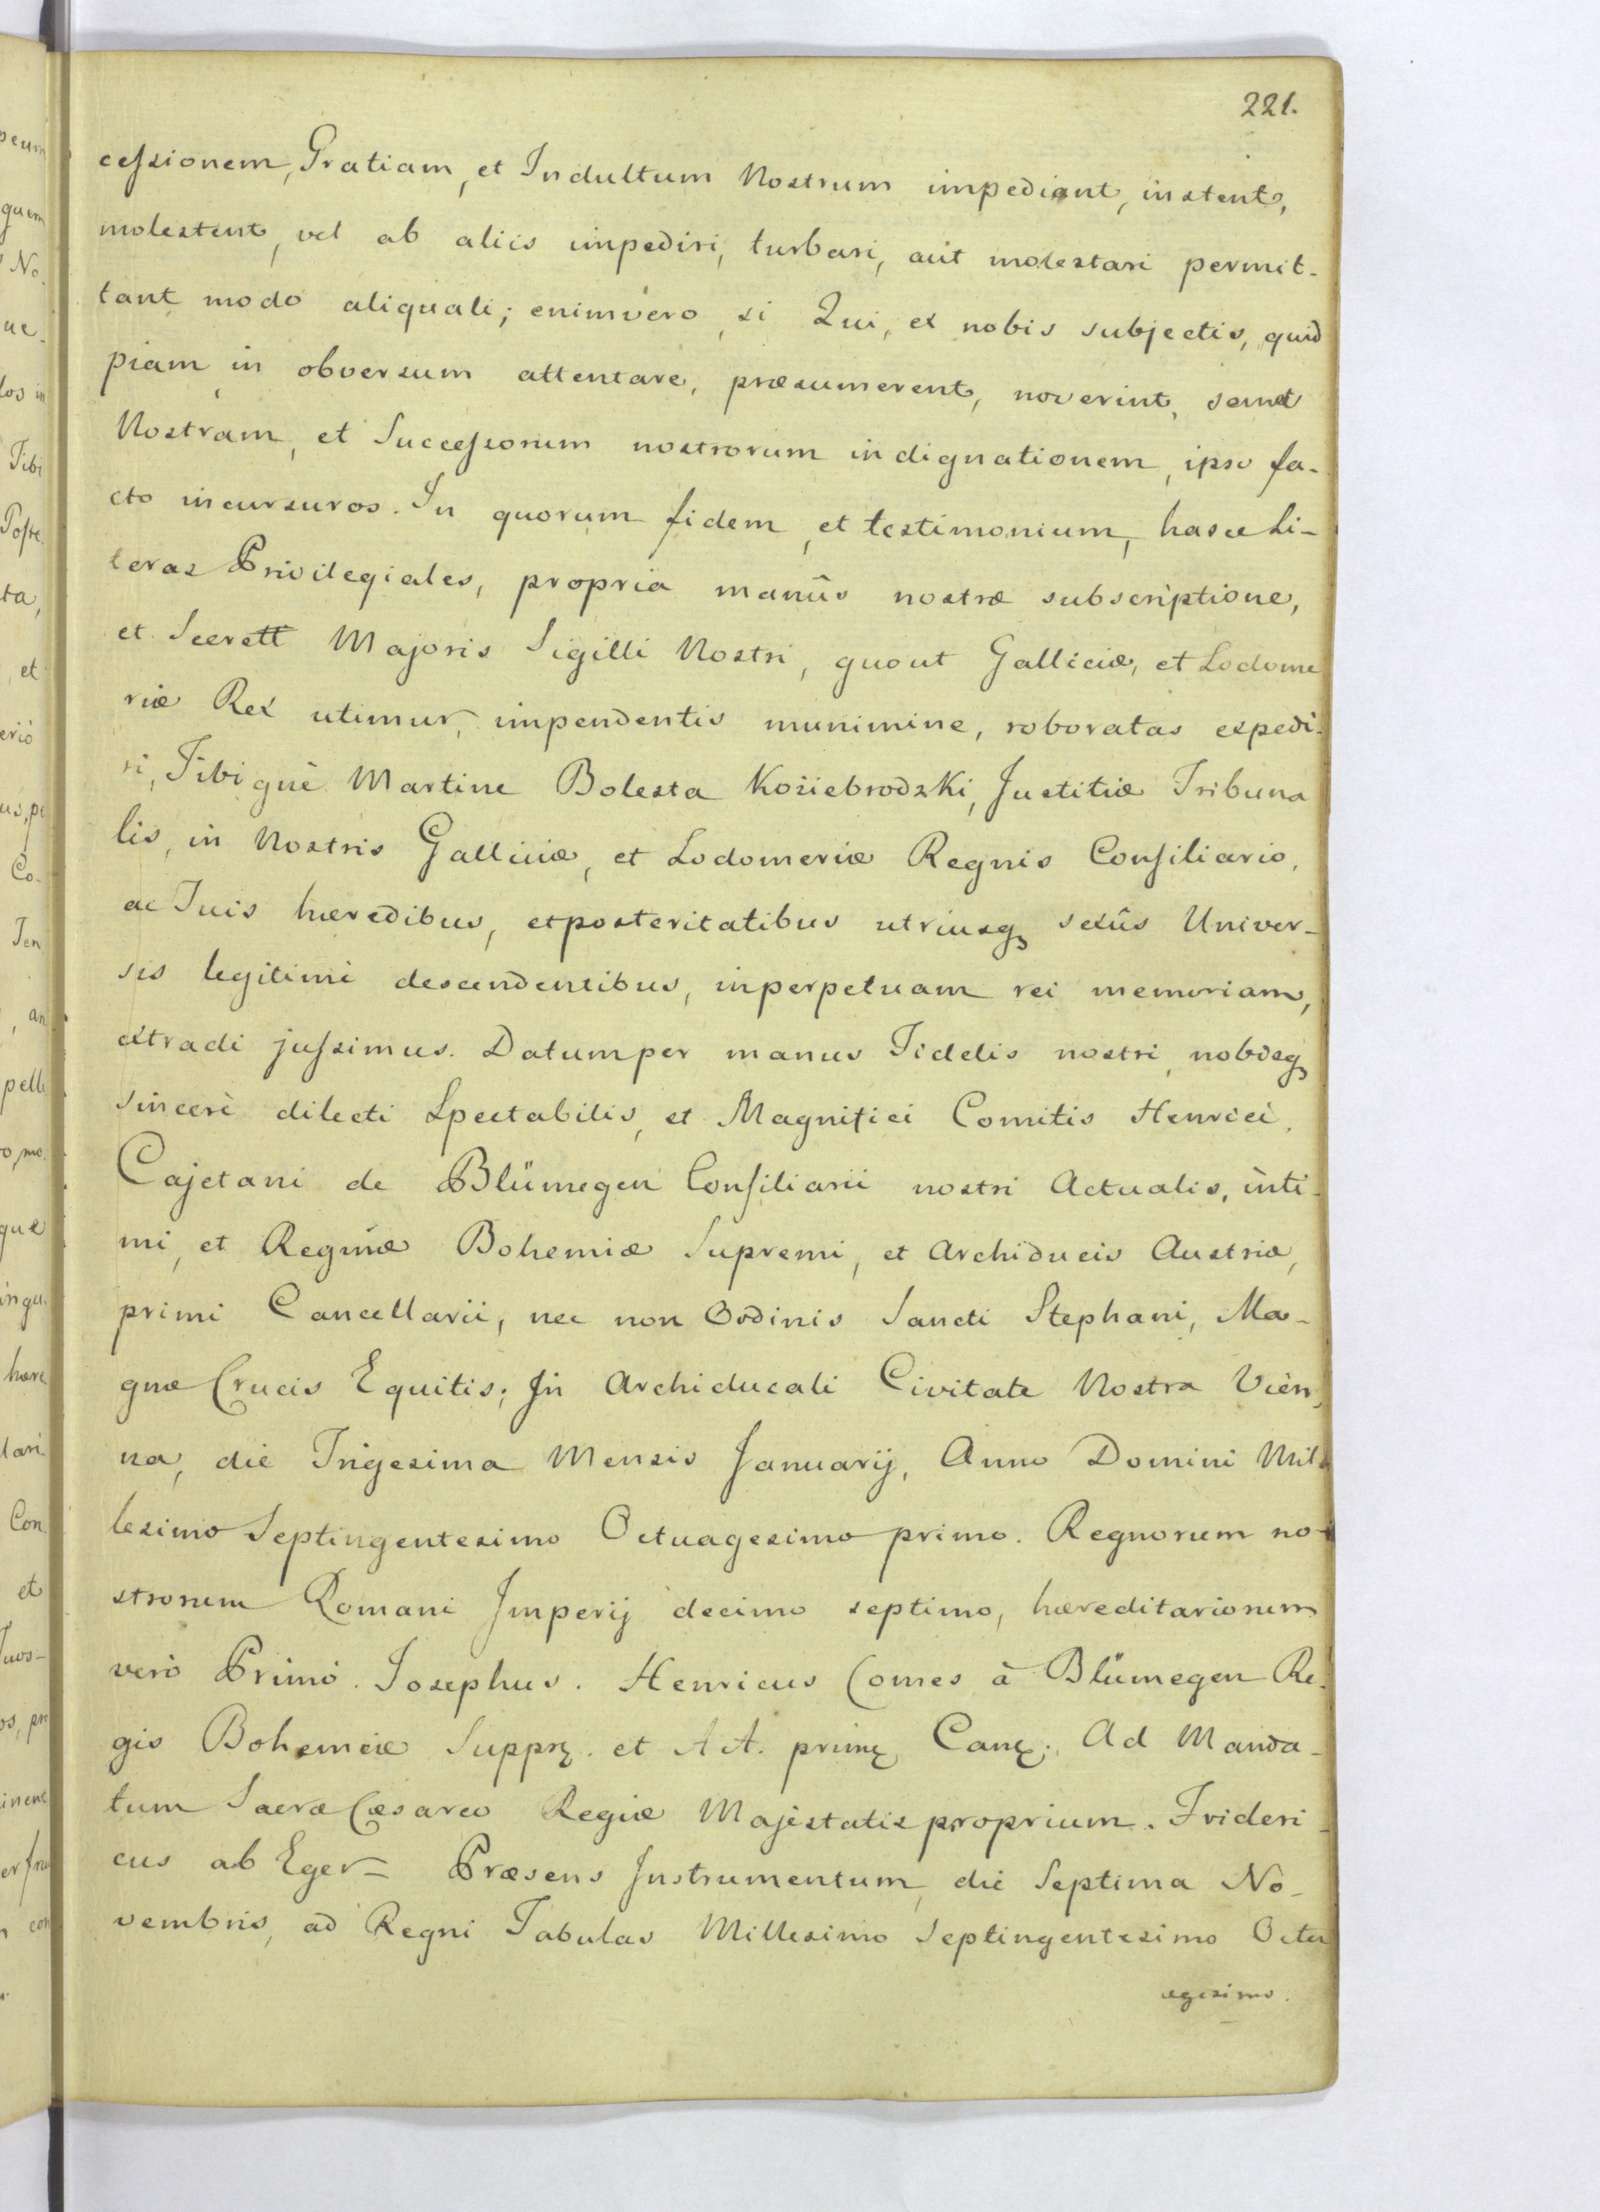 221.
cessionem, Gratiam, et Indultum Nostrum impediant, instent,
molestent, vel ab aliis impediri, turbari, aut molestari permit-
tant modo aliquali; enimvero, si Qui, ex nobis subjectis, quid
piam in obversum attentare, præsumerent, noverint, semet
Nostram, et Successorum nostrorum indignationem, ipso fa-
cto incursuros. In quorum fidem, et testimonium, hasce Li-
teras Privilegiales, propria manûs nostræ subscriptione,
et Secrett Majoris Sigilli Nostri, quo ut Galliciæ, et Lodome
riæ Rex utimur, impendentis munimine, roboratas expedi-
ri, Tibiquè Martine Bolesta Koziebrodzki, Justitiæ Tribuna
lis, in Nostris Galliciæ, et Lodomeriæ Regnis Consiliario,
ac Tuis hæredibus, et posteritatibus utriusq sexûs Univer-
sis legitimè descendentibus, in perpetuam rei memoriam,
extradi jussimus. Datum per manus Fidelis nostri, nobisq
sincerè dilecti Spectabilis, et Magnifici Comitis Henrici,
Cajetani de Blümegen Consiliarii nostri Actualis, inti-
mi, et Regniæ Bohemiæ Supremi, et Archiducis Austriæ,
primi Cancellarii, nec non Ordinis Sancti Stephani, Ma-
gnæ Crucis Equitis; In Archiducali Civitate Nostra Vien,
na, die Trigesima Mensis Januarij, Anno Domini Mil-
lesimo Septingentesimo Octuagesimo primo. Regnorum no-
strorum Romani Imperij decimo septimo, hæreditariorum
verò Primo. Josephus. Henricus Comes à Blümegen Re-
gis Bohemiæ Suppr. et A A. prim Canc. Ad Manda-
tum Sacræ Cæsareo Regiæ Majestatis proprium. Frideri-
cus ab Eger= Præsens Instrumentum, die Septima No-
vembris, ad Regni Tabulas Millesimo Septingentesimo Octu
agesimo.